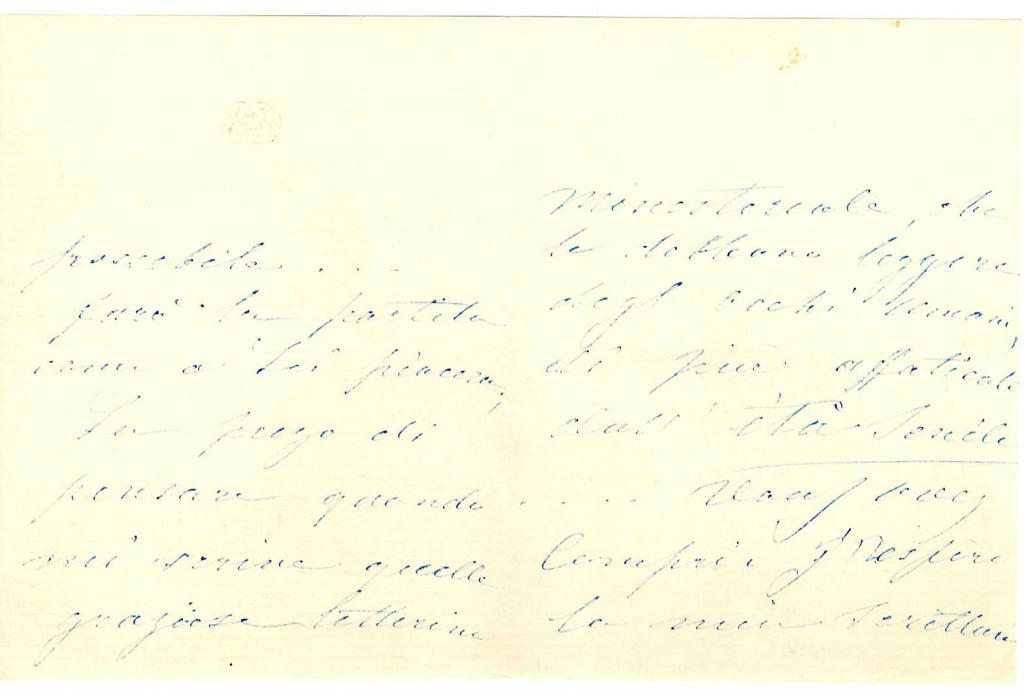 possibile ...
farò la partita
come a Lei piacerà,
La prego di
pensare quando
mi scrive quelle
graziose letterine
ministeriale, che
le debbono leggere
degl' occhi umani,
di più affaticati
dall' età senile
.... Vous avez
compris j'espère
la mia scrittura